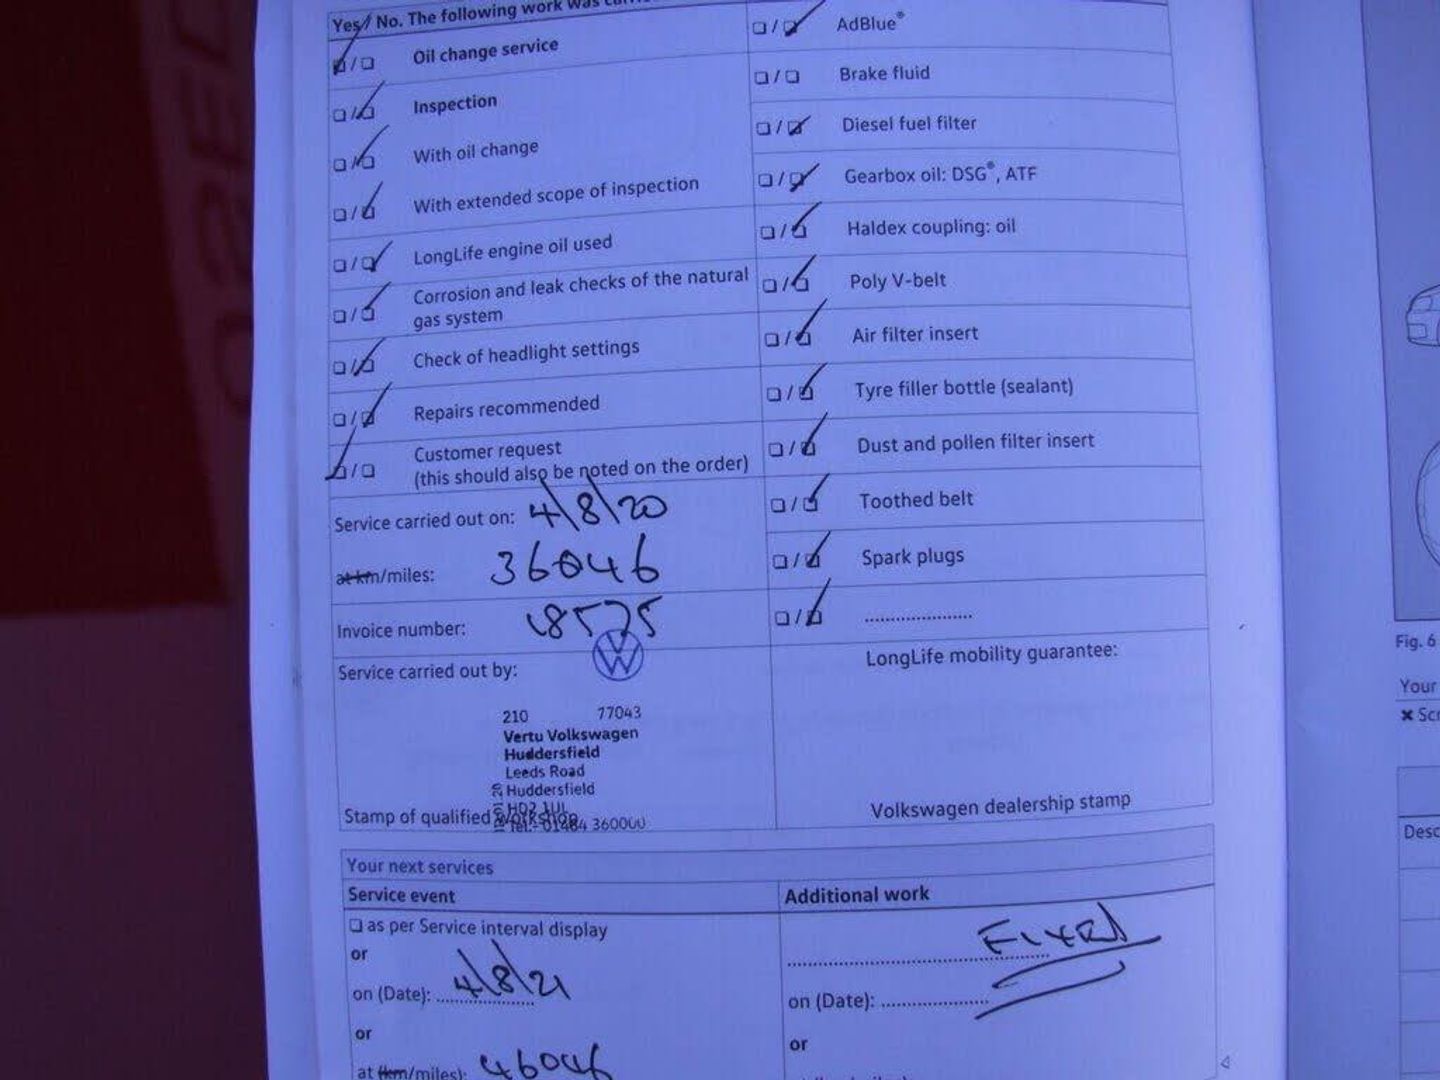 Yes/ No. The following work was
Oil change service
Inspection
With oil change
With extended scope of inspection
LongLife engine oil used
Corrosion and leak checks of the natural
gas system
Check of headlight settings
Repairs recommended
Customer request
(this should also be noted on the order)
Service carried out on: 4/8/20
at km/miles: 36046
Invoice number: 18575
Service carried out by:
210 77043
Vertu Volkswagen
Huddersfield
Leeds Road
Huddersfield
HD2 1UL
Tel:- 01484 360000
Stamp of qualified workshop
AdBlue®
Brake fluid
Diesel fuel filter
Gearbox oil: DSG®, ATF
Haldex coupling: oil
Poly V-belt
Air filter insert
Tyre filler bottle (sealant)
Dust and pollen filter insert
Toothed belt
Spark plugs
LongLife mobility guarantee:
Volkswagen dealership stamp
Your next services
Service event
as per Service interval display
or
on (Date): 4/8/21
or
at (km/miles): 46046
Additional work
on (Date):
or
Fig. 6
Your
Desc